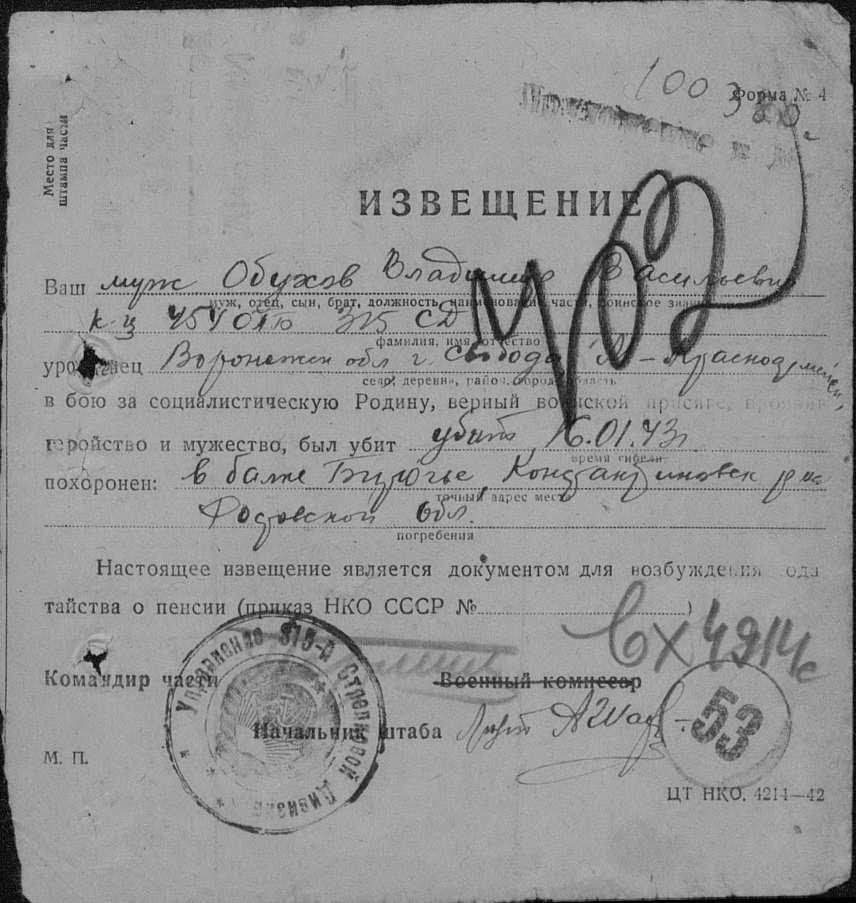 100 380
Форма № 4
Место для
штампа части
ИЗВЕЩЕНИЕ
402
Ваш муж Обухов Владимир Васильевич
муж, отец, сын, брат, должность, наименование части, воинское звание
325 СД
фамилия, имя, отчество
уроженец Воронежск обл г. Свобода
село, деревня, район, город, область
в бою за социалистическую Родину, верный воинской присяге, проявив
геройство и мужество, был убит убит 16.01.43г
время гибели
похоронен: в балке Константиновск р-на
точный адрес места
Ростовской обл.
погребения
Настоящее извещение является документом для возбуждения хода
тайства о пенсии (приказ НКО СССР № )
Вх 4914с
Командир части Военный комиссар
Управление 315-й Стрелковой Дивизии
Начальник штаба
53
М. П.
ЦТ НКО. 4214—42